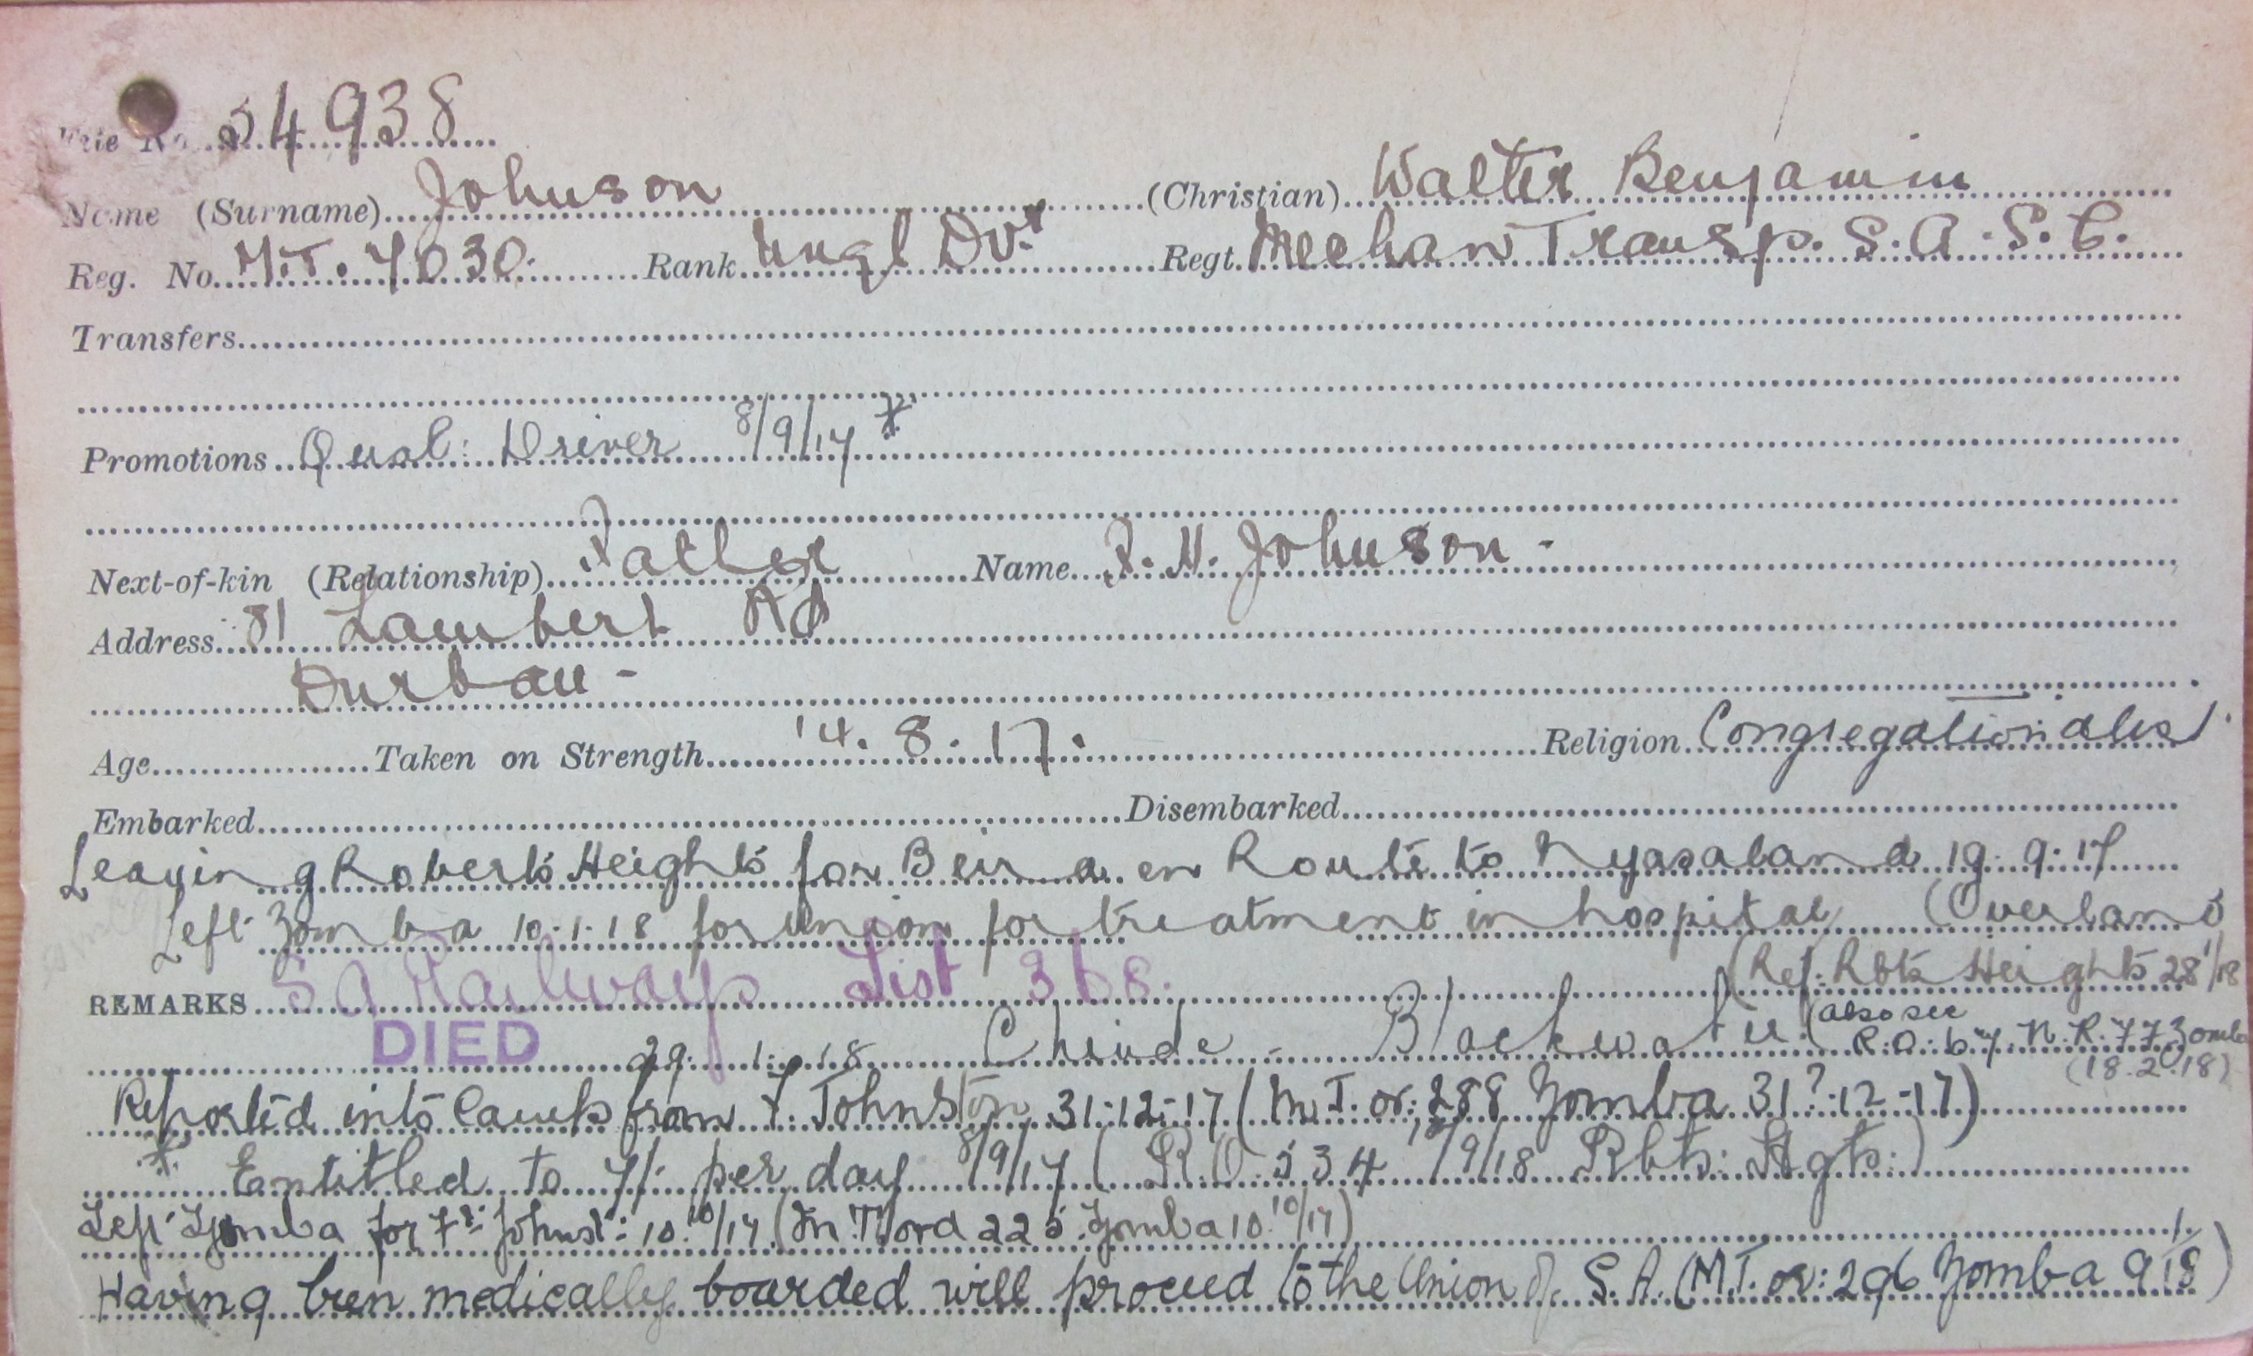 File No. 54938
Name (Surname) Johnson (Christian) Walter Benjamin
Reg. No. M.T. 7030. Rank Dvr Regt. Mechan Transp. S.A.S.C.
Transfers
Promotions Qual: Driver 8/9/17 *
Next-of-kin (Relationship) Father Name J. H. Johnson -
Address 81 Lambert Rd
Durban -
Age Taken on Strength 14. 8. 17. Religion Congregationalist
Embarked Disembarked
Leaving Roberts Heights for Beira en Route to Nyasaland 19.9.17
Left Zomba 10.1.18 for Union for treatment in hospital (Overland
(Ref: Rbts Heights 28/1/18
REMARKS S A Railways List 368.
DIED 29. 1. 18 Chinde - Blackwater (also see R.O. 67 N.R. 77 Zomba
(18.2.18)
Reported into Camp from F. Johnston 31-12-17 (M.T. or: 288 Zomba 31?-12-17)
* Entitled to 7/- per day 8/9/17 (R.O. 534 /9/18 Rbts: Hgts:)
Left Zomba for Ft: Johnst: 10.10/17 (M.T. ord 225 Zomba 10.10/17)
Having been medically boarded will proceed to the Union of S.A. (M.T. or: 296 Zomba 9.1/18)